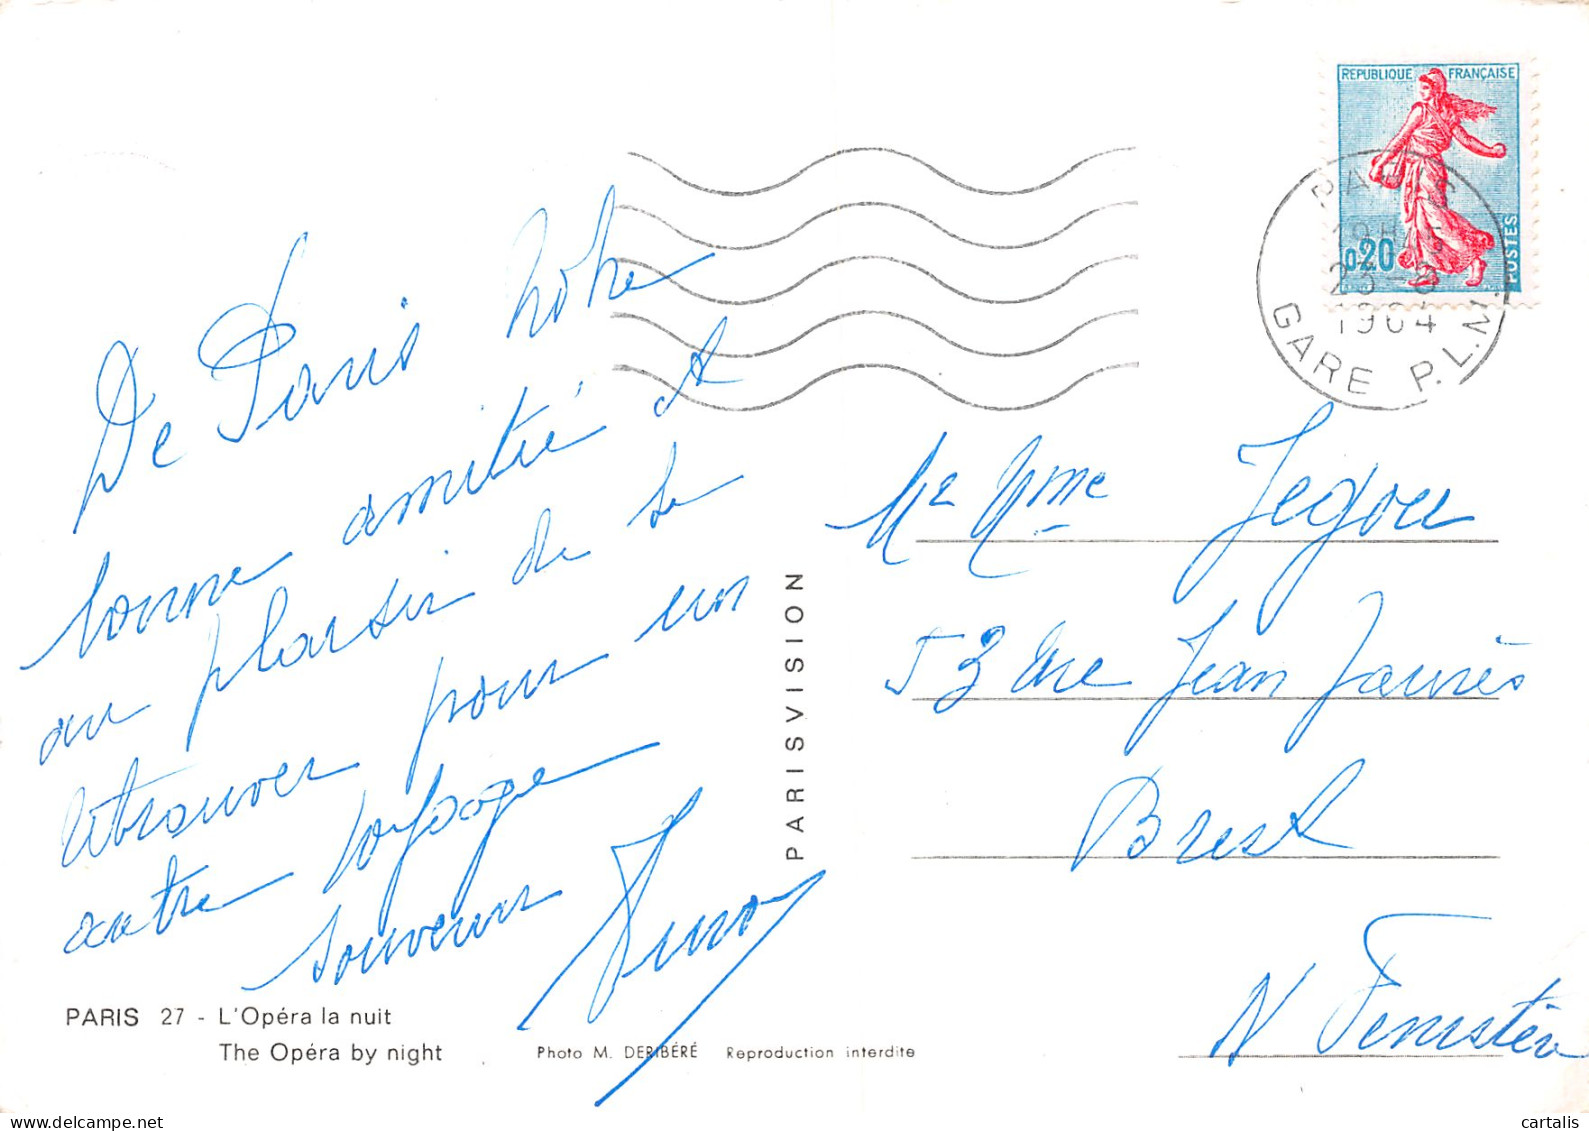 De Paris notre
bonne amitié et
au plaisir de se
retrouver pour un
autre voyage
souvenir
PARIS 27 - L'Opéra la nuit
The Opéra by night
Photo M. DERIBÉRÉ Reproduction interdite
PARISVISION
REPUBLIQUE FRANÇAISE
0,20
POSTES
PARIS
19H45
23-8
1964
GARE P.L.M.
Mr Mme Jegou
53 Rue Jean Jaurès
Brest
N Finistère
delcampe.net
cartalis